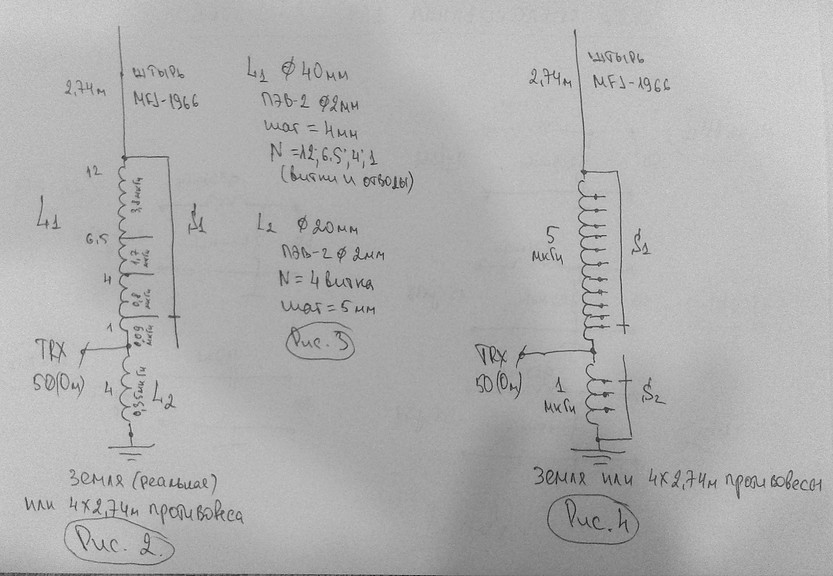 2,74м
ШТЫРЬ
MFJ-1966
12
3,8 мкГн
L1
S1
6,5
1,7 мкГн
4
0,8 мкГн
1
0,09 мкГн
TRX
50(Ом)
4
0,35мкГн
L2
Земля (реальная)
или 4х2,74м противовеса
Рис. 2.
L1 Ф40мм
ПЭВ-2 Ф2мм
шаг = 4мм
N = 12; 6.5; 4; 1
(витки и отводы)
L2 Ф20мм
ПЭВ-2 Ф2мм
N = 4 витка
шаг = 5мм
Рис. 3
2,74м
ШТЫРЬ
MFJ-1966
5
мкГн
S1
TRX
50(Ом)
1
мкГн
S2
Земля или 4х2,74м противовесы
Рис. 4